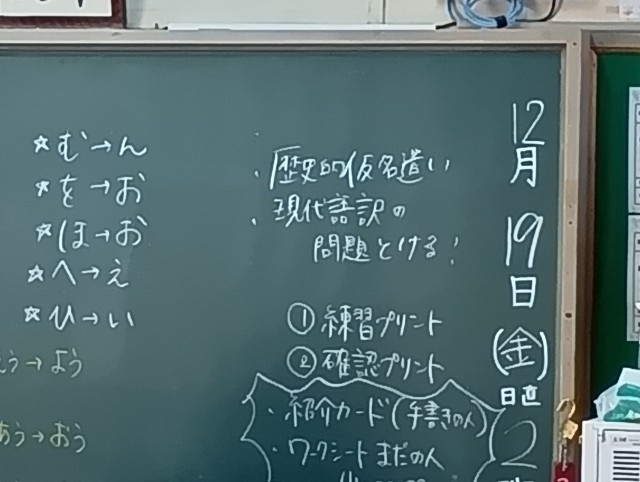 12月19日(金)
日直
2
・歴史的仮名遣い
・現代語訳の
問題とける!
①練習プリント
②確認プリント
・紹介カード(手書きの人)
・ワークシートまだの人
☆む→ん
☆を→お
☆ほ→お
☆へ→え
☆ひ→い
う→よう
あう→おう